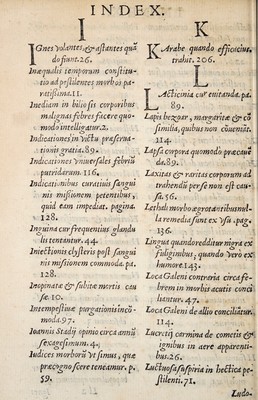 INDEX.
I
IGnes volantes, & astantes quā
do fiunt. 26.
Inæqualis temporum constitu-
tio ad pestilentes morbos pa-
ratissima. 11.
Inediam in biliosis corporibus
malignas febres facere quo-
modo intelligatur. 2.
Indicationes in victu præserua-
tionis gratia. 89.
Indicationes vniuersales febriū
putridarum. 116.
Indicationibus curatiuis sangui
nis missionem petentibus,
quid eam impediat. pagina.
128.
Inguina cur frequentius glandu
lis tententur. 44.
Iniectionis clysteris post sangui
nis missionem commoda. pa.
128.
Inopinatæ & subitæ mortis cau
sæ. 10.
Intempestiuæ purgationis incō-
moda. 97.
Ioannis Stadij opinio circa annū
sexagesimum. 4.
Indices morborū vt simus, quæ
præcognoscere teneamur. p.
59.
K
KArabe quando efficacius
trahit. 206.
L
LActicinia cur euitanda. pa.
89.
Lapis bezoar, margaritæ & cō
similia, quibus non cōueniāt.
214.
Lapsa corpora quomodo præcauē
da. 89.
Laxitas & raritas corporum ad
trahendū per se non est cau-
sa. 56.
Lethali morbo ægrotātibus mul-
la remedia sunt ex vsu. pag.
136.
Lingua quando redditur nigra ex
fuliginibus, quando verò ex
humore. 143.
Loca Galeni contraria circa fe-
brem in morbis acutis conci
liantur. 47.
Loca Galeni de allio conciliātur.
114.
Lucretij carmina de cometis & i-
gnibus in aere apparenti-
bus. 26.
Luctuosa suspiria in hectica pe-
stilenti. 71.
Ludo.